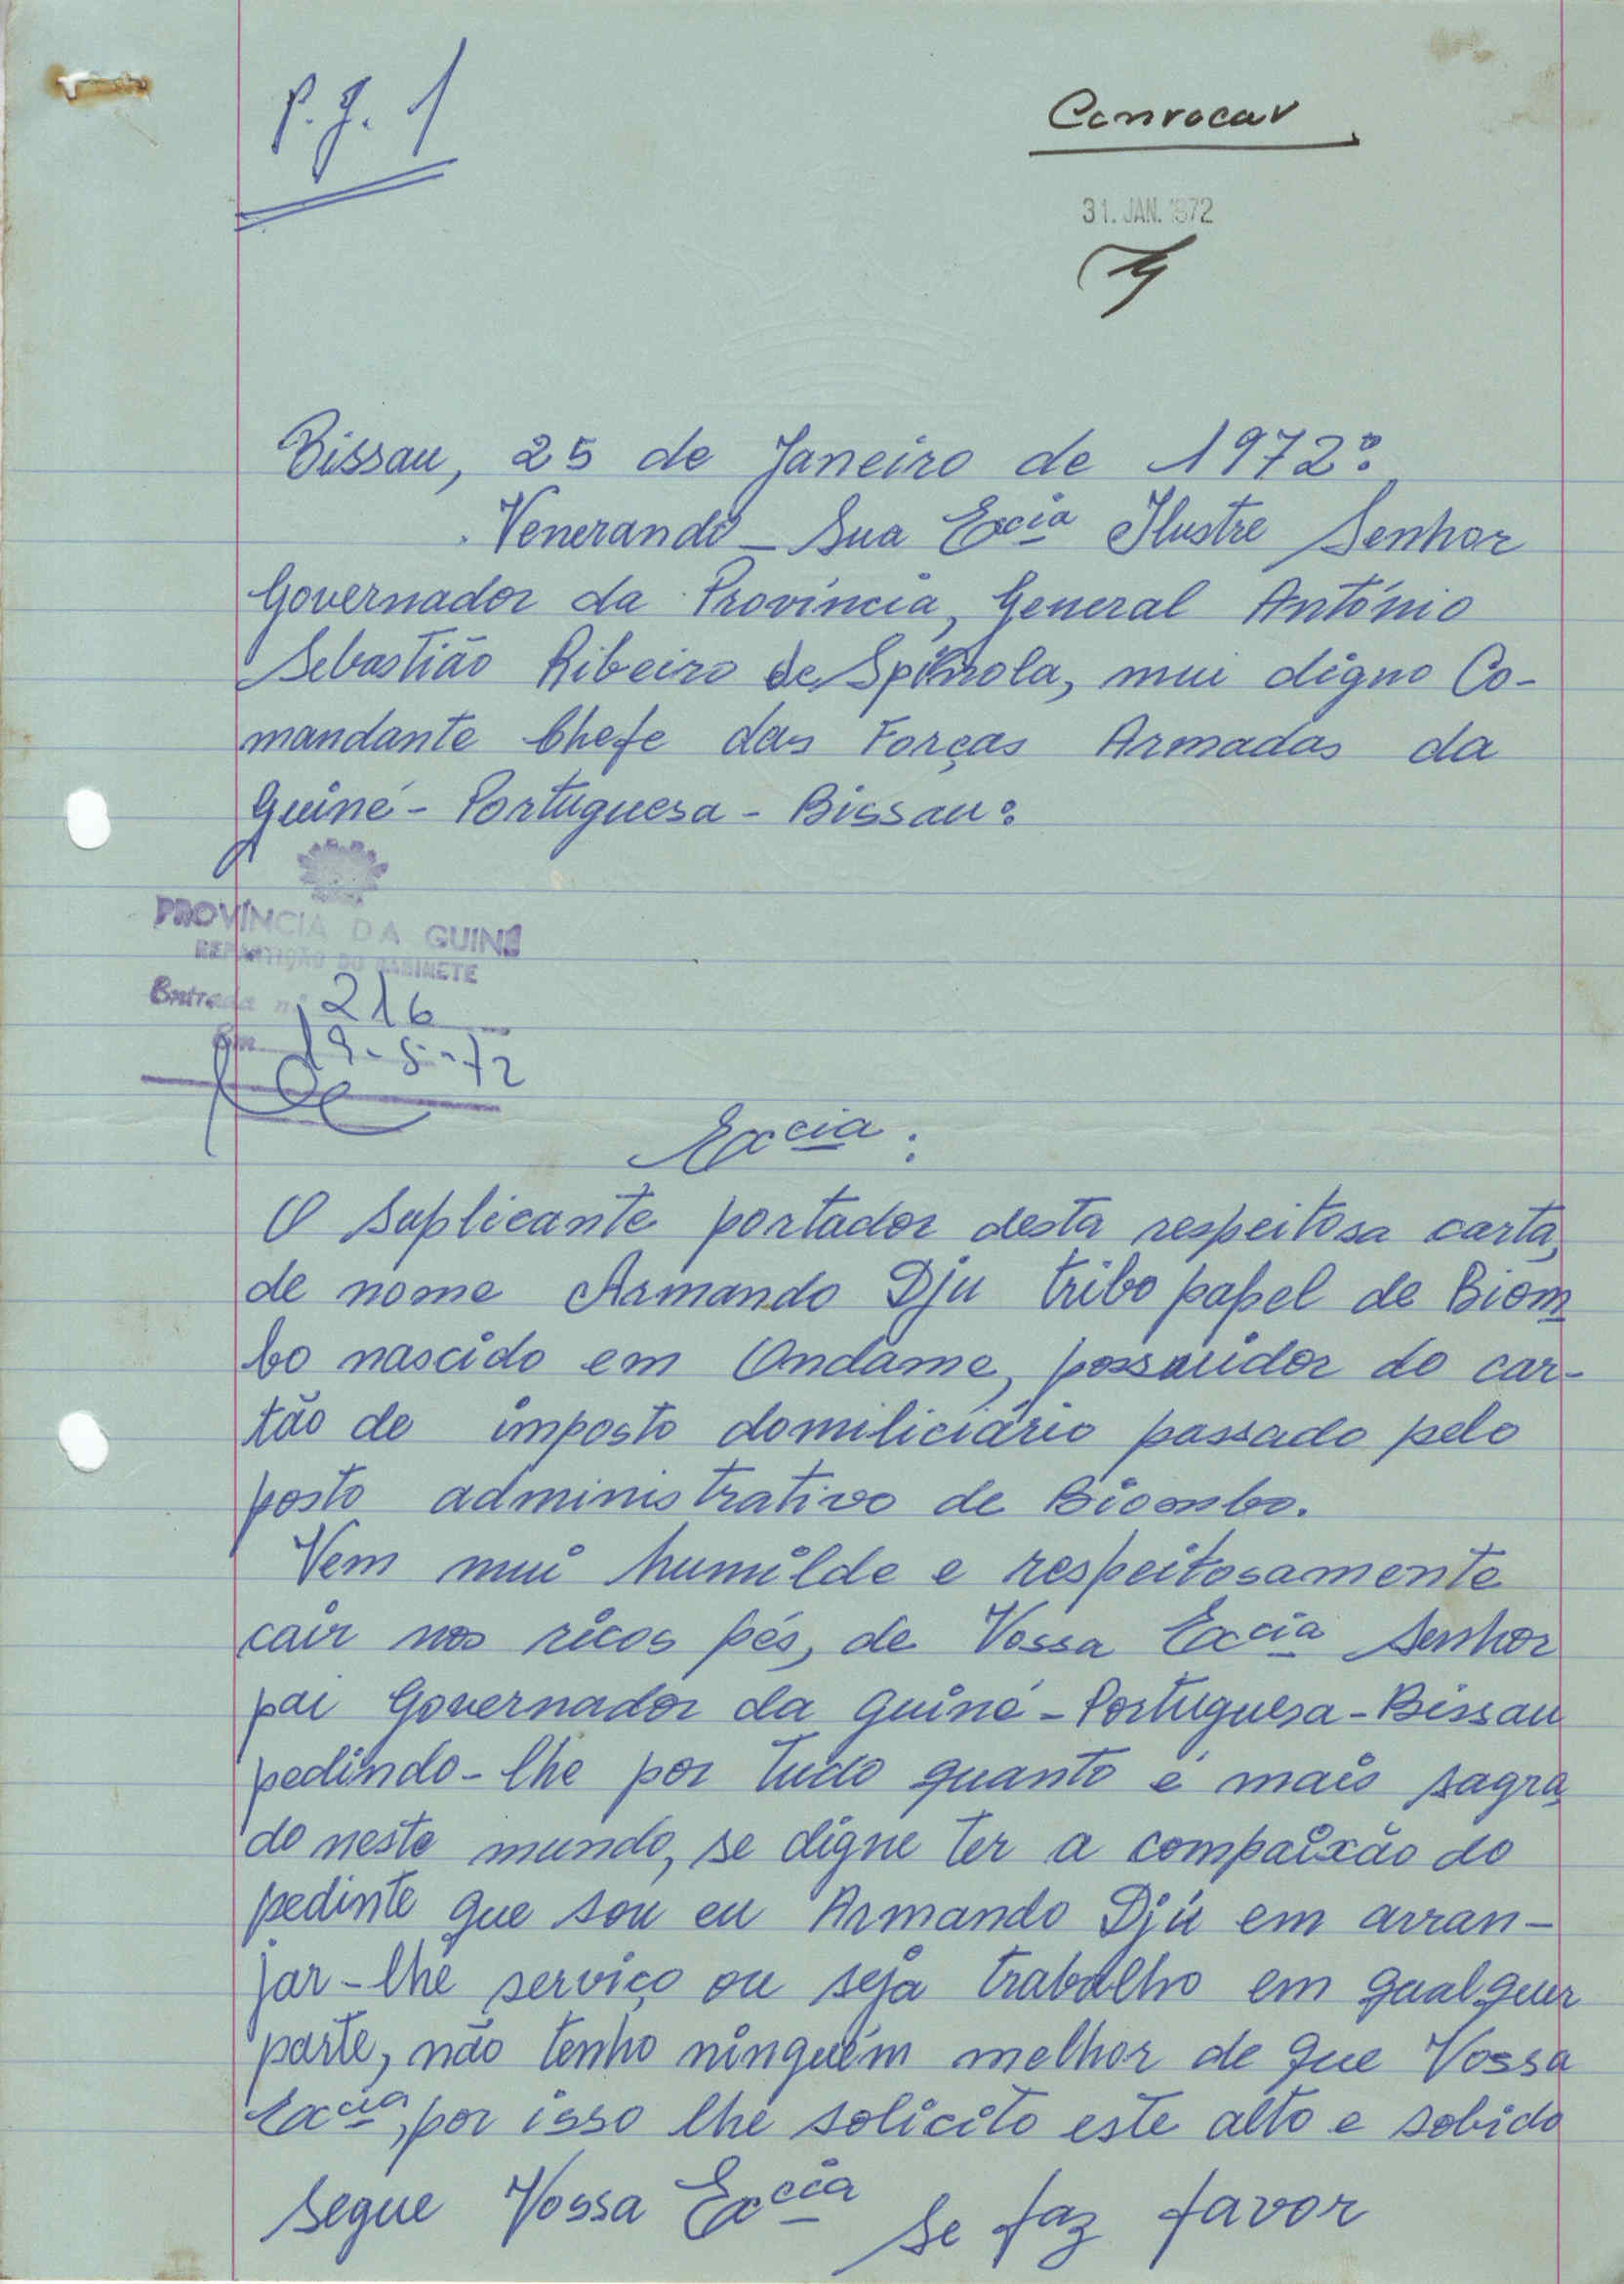 P.G. 1
Convocar
31. JAN. 1972
Bissau, 25 de Janeiro de 1972:
Venerando _ Sua Excia Ilustre Senhor
Governador da Província, General António
Sebastião Ribeiro de Spínola, mui digno Co-
mandante Chefe das Forças Armadas da
Guiné - Portuguesa - Bissau:
PROVÍNCIA DA GUINÉ
REPARTIÇÃO DO GABINETE
Entrada nº 216
Em 19-5-72
Excia:
O suplicante portador desta respeitosa carta,
de nome Armando Dju tribo papel de Biom
bo nascido em Ondame, possuidor do car-
tão de imposto domiliciário passado pelo
posto administrativo de Biombo.
Vem mui humilde e respeitosamente
cair nos ricos pés, de Vossa Excia Senhor
pai Governador da Guiné - Portuguesa - Bissau
pedindo-lhe por tudo quanto é mais sagra
do neste mundo, se digne ter a compaixão do
pedinte que sou eu Armando Djú em arran-
jar-lhe serviço ou seja trabalho em qualquer
parte, não tenho ninguém melhor de que Vossa
Excia, por isso lhe solicito este alto e sobido
segue Vossa Excia se faz favor